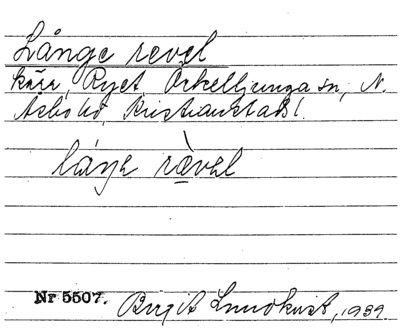 Långe revel
kärr, Ryet, Örkelljunga sn, N.
Åsbo hd, Kristianstads l.
långe rævel
Nr 5507. Birgit Lundkvist, 1939.